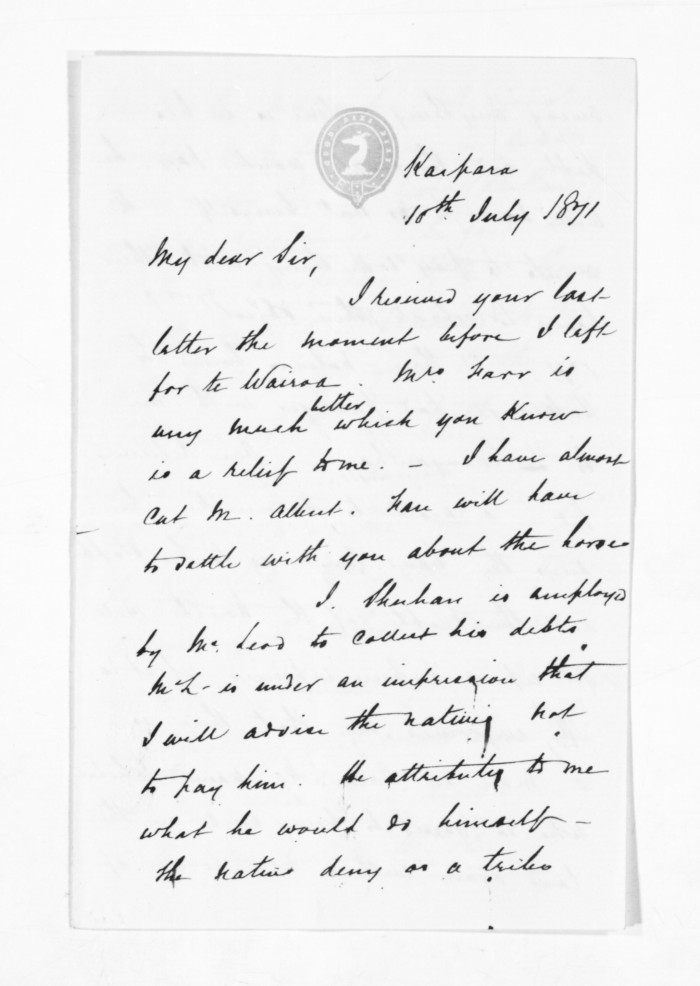 Kaipara
10th July 1871
My dear Sir,
I received your last
letter the moment before I left
for te Wairoa. Mrs Farr is
very much better which you know
is a relief to me. – I have almost
cut M. Albert. Farr will have
to settle with you about the horse
J. Sheehan is employed
by Mc. Leod to collect his debts.
McL– is under an impression that
I will advise the natives not
to pay him. He attributes to me
what he would do himself –
the natives deny as a tribe